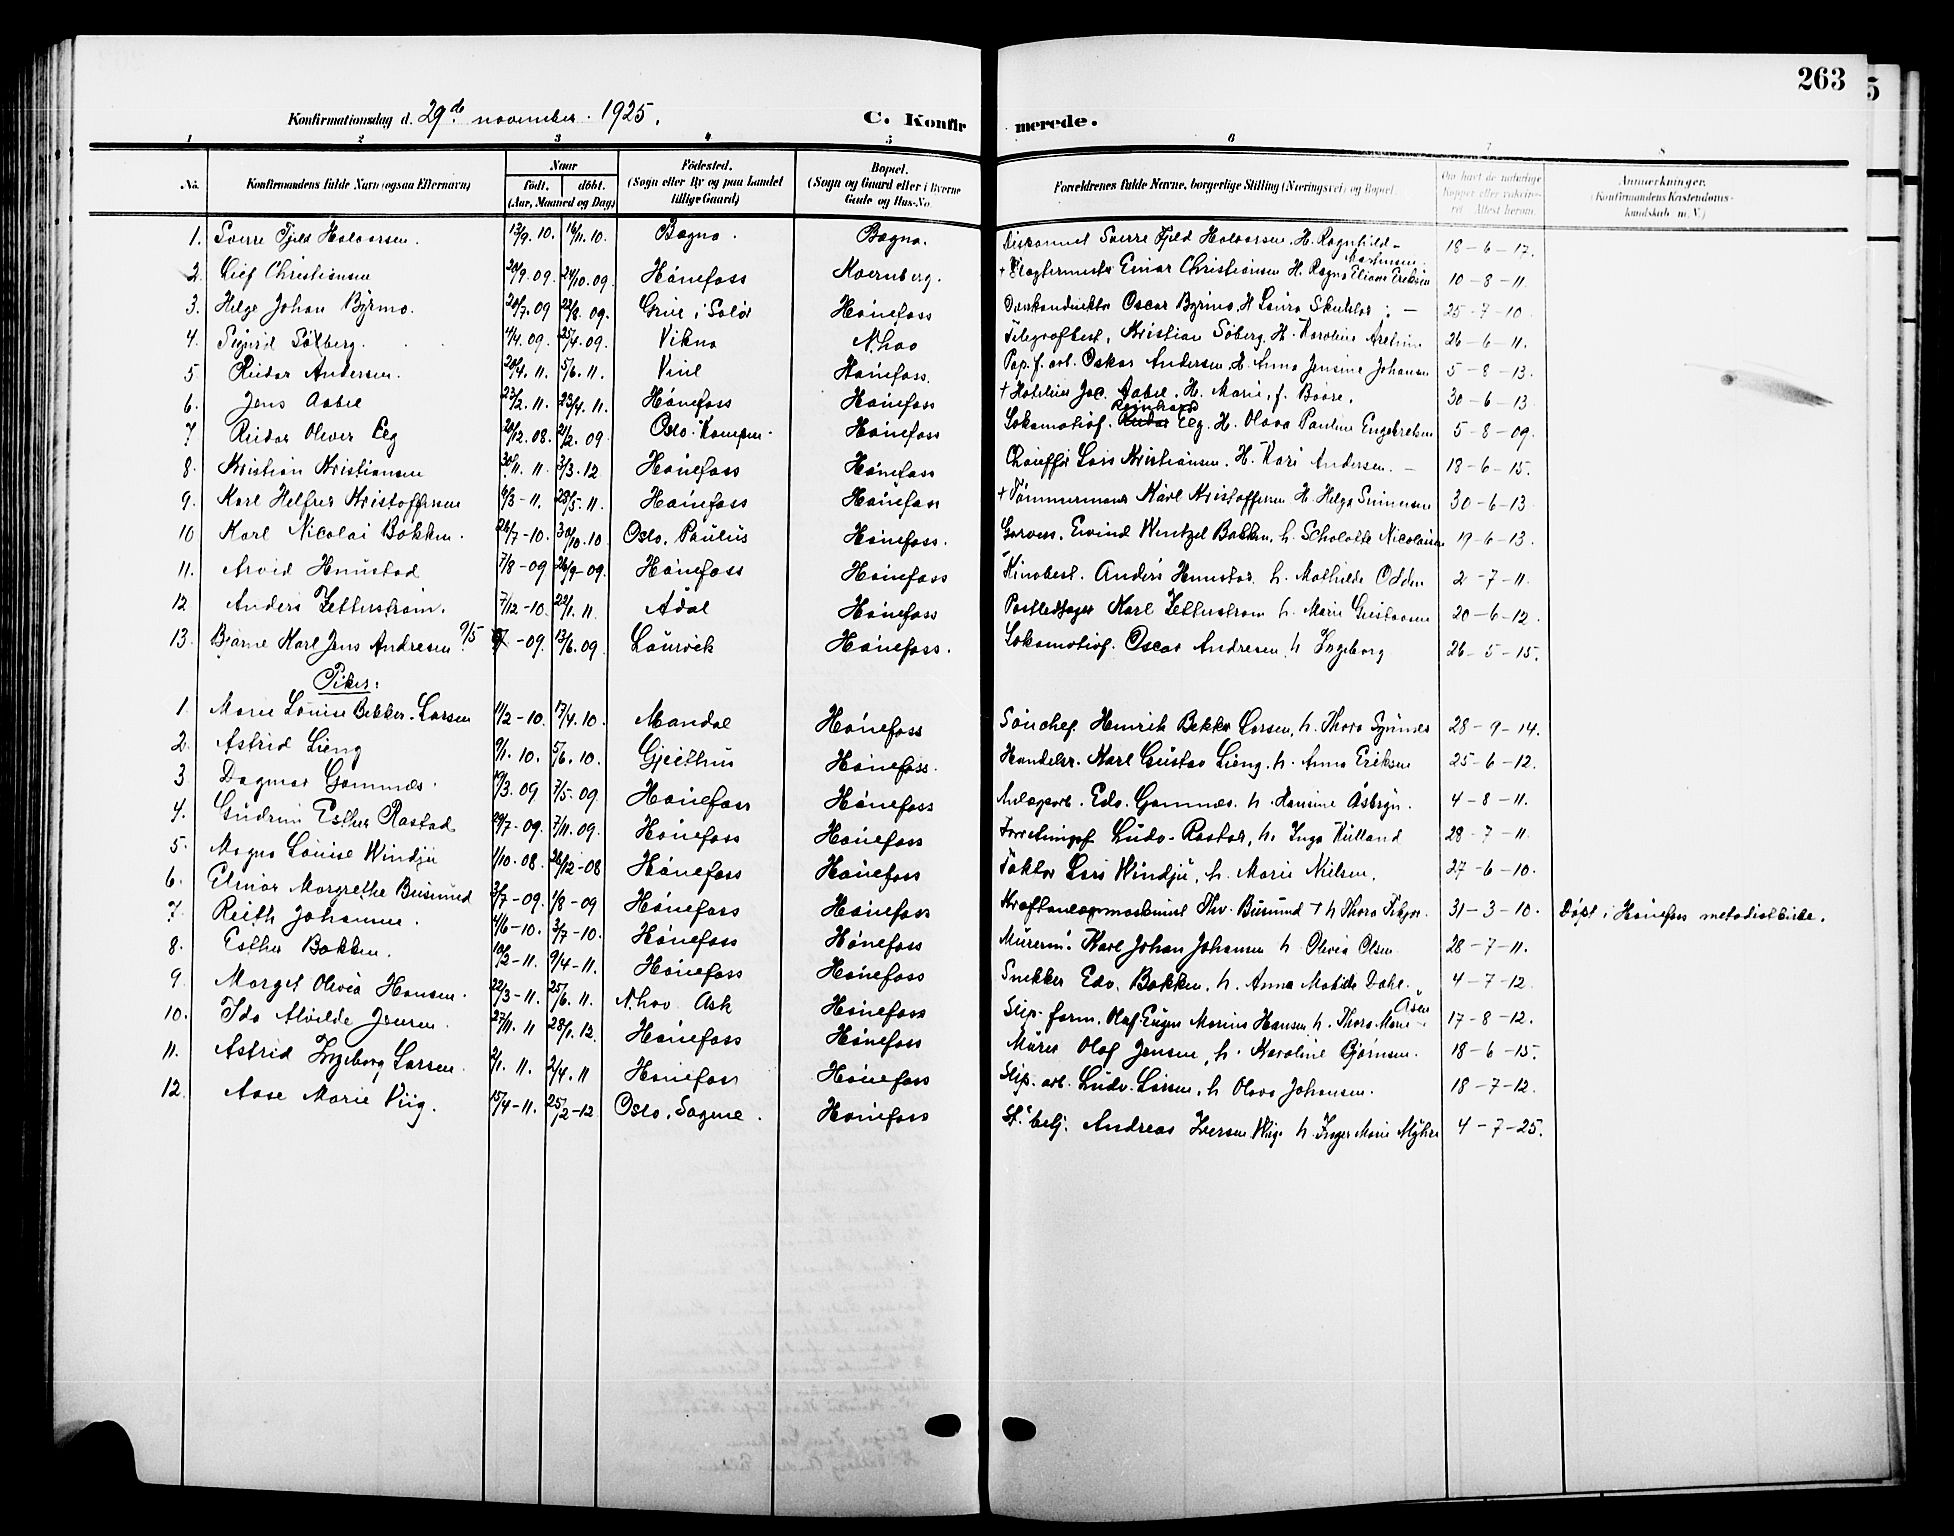 263
5
Konfirmationsdag d. 29de november 1925.
C. Konfirmerede.
1 2 3 4 5 6 7 8
No. Konfirmandens fulde Navn (ogsaa Efternavn) Naar født. døbt. (Aar, Maaned og Dag) Fødested. (Sogn eller By og paa Landet tillige Gaard) Bopæl. (Sogn og Gaard eller i Byerne Gade og Hus-No. Forældrenes fulde Navne, borgerlige Stilling (Næringsvei) og Bopæl. Om havt de naturlige Kopper eller vaksineret. Attest herom. Anmærkninger. (Konfirmandens Kristendomskundskab m. V.)
1. Sverre Fjeld Halvorsen. 13/9. 10. 16/11. 10. Bagno. Bagno. Sverre Fjeld Halvorsen. H. Ragnhild Martinsen 18-6-17.
2. Leif Christiansen 20/9. 09 24/10. 09. Hönefoss Kvernberg. + Einar Christiansen H. Ragna Eliane Eriksen 10-8-11.
3. Helge Johan Byrmo. 20/7. 09 22/8. 09. Grue i Solör Hönefoss Oscar Byrmo, H. Laura 25-7-10.
4. Sigurd Sölberg. 4/4. 09. 25/4. 09. Vikna N.hov Telegrafbest. Kristian Söberg. H. Karoline 26-6-11.
5 Reidar Andersen. 20/4. 11. 5/6. 11. Hönefoss. Pap. f. arb. Oskar Andersen, H. Anna Jensine Johansen 5-8-13.
6. Jens Aabel 23/2. 11. 23/4. 11. Hönefoss Hönefoss + Hotelier Jac. Aabel. H. Marie, f. Boore. 30-6-13
7 Reidar Oliver Elg 20/12. 08. 21/2. 09. Oslo. Kampen. Hönefoss Lokomotivf. Reinhard Elg. H. Olava Pauline Engebretsen 5-8-09.
8. Kristian Kristiansen 30/11. 11. 3/3. 12 Hönefoss Hönefoss Chaufför Lars Kristiansen. H. Kari Andersen. 18-6-15.
9. Karl Helfrer Kristoffersen 6/3-11. 28/5. 11. Hönefoss Hönefoss + Tömmermand Karl Kristoffersen H. Helga 30-6-13
10 Karl Nicolai Bakken. 26/7-10. 30/10. 10 Oslo, Paulus Hönefoss. Eivind Wentzel Bakken, h. Nicolaisen 19-6-13.
11. Arvid Hmustad 7/8-09 26/9-09. Hönefoss Hönefoss Kinobest. Anders h. Mathilde Odden 2-7-11.
12 Anders Zetterström. 7/12-10. 22/1. 11. Ådal Hönefoss Karl Zetterström h. Marie Gustavsen 20-6-12.
13. Bjarne Karl Jens Andresen 9/5 -09. 13/6. 09. Laurvik Hönefoss. Lokomotivf. Oscar Andresen, h. Ingeborg 26-5-15.
Piker:
1. Marie Louise Bekker-Larsen 11/2-10. 17/4. 10. Mandal Hönefoss Henrik Bekker Larsen, h. Thora 28-9-14.
2. Astrid Lieng 9/1. 10. 5/6. 10. Gjeithus Hönefoss. Handelsr. Karl Gustav Lieng, h. Anna Eriksen 25-6-12.
3 Dagmar Gamnes. 19/3. 09 7/5. 09 Hönefoss Hönefoss Anlægsarb. Edv. Gamnes. h. Hansine Åsbryn. 4-8-11.
4. Gudrun Esther Rastad 29/7-09. 7/11. 09. Hönefoss Hönefoss Ludv. Rastad, h. Inga Kulland 28-7-11.
5. Magna Louise Windju 1/10. 08. 26/12-08 Hönefoss Hönefoss Faktor Lars Windju, h. Marie Nielsen. 27-6-10.
6. Elinor Margrethe Busund 3/7-09. 1/8-09 Hönefoss Hönefoss Kraftanlægsmaskinist Thv. Busund + h. Thora 31-3-10. Döpt i Hönefoss metodistkirke.
7. Ruth Johansen. 4/6-10. 3/7-10. Hönefoss Hönefoss Murerm. Karl Johan Johansen h. Olivia Olsen 28-7-11.
8. Esther Bakken. 10/2-11. 9/4-11. Hönefoss Hönefoss Snekker Edv. Bakken, h. Anna Matilde Dahl. 4-7-12.
9 Margit Olivia Hansen. 22/3-11. 25/6. 11. N.hov Ask Hönefoss Slip. form. Olaf Eugen Marius Hansen h. Thora Marie Åsen 17-8-12.
10. Ida Alvilde Jensen. 27/11. 11 28/1. 12. Hönefoss Hönefoss Murer Olaf Jensen, h. Karoline Bjørnsen. 18-6-15.
11. Astrid Ingeborg Larsen. 2/1. 11. 2/4. 11 Hönefoss Hönefoss Slip. arb. Ludv. Larsen, h. Olava Johansen. 18-7-12.
12. Aase Marie Viig. 15/4-11. 25/2-12 Oslo, Sagene. Hönefoss St. betj. Andreas Iversen Viig. h. Inger Marie Myhre 4-7-25.